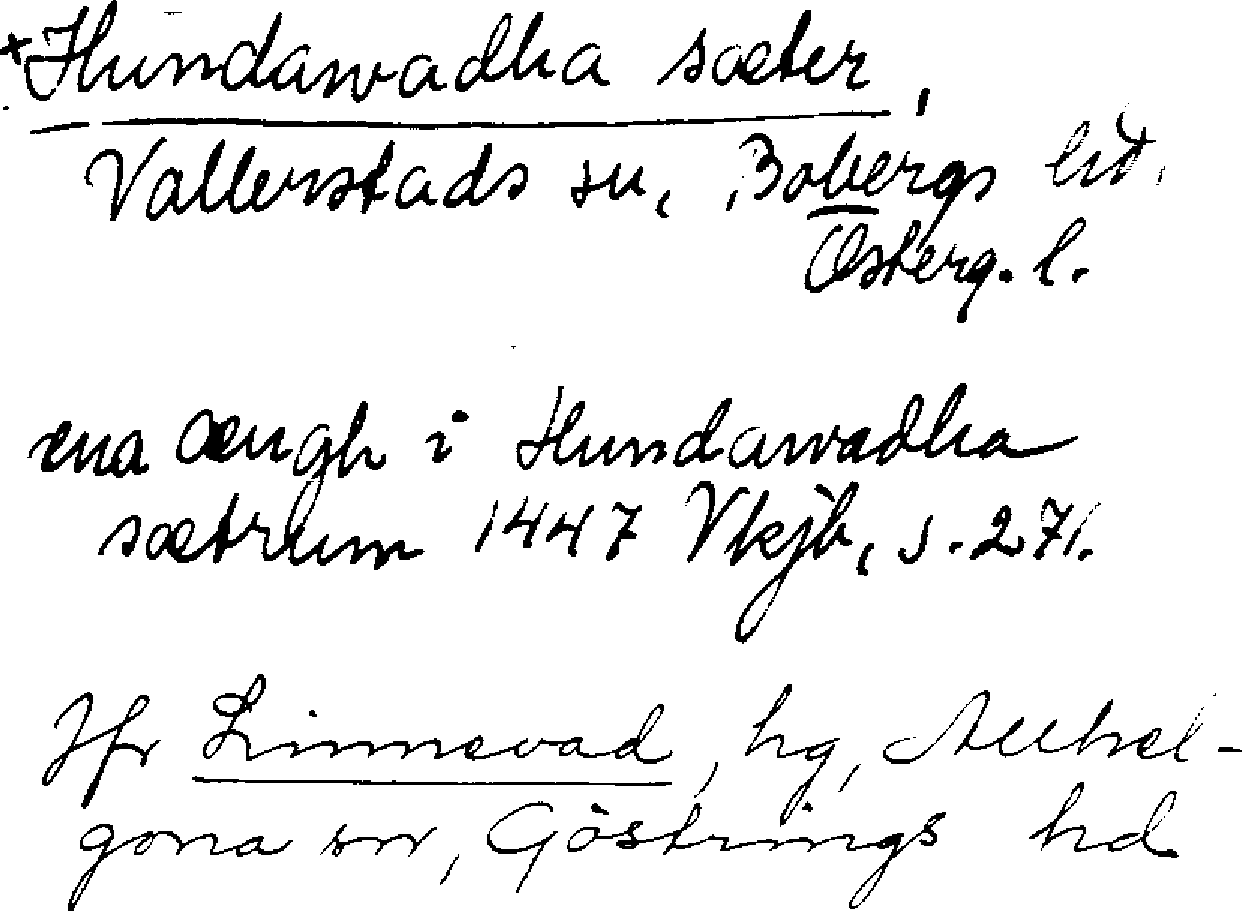 ×Hundawadha sæter,
Vallerstads sn, Bobergs hd.
Österg. l.
ena ængh i Hundawadha
sætrum 1447 Vkjb, s. 271.
Jfr Linnevad, hg, Allhel-
gona sn, Göstrings hd